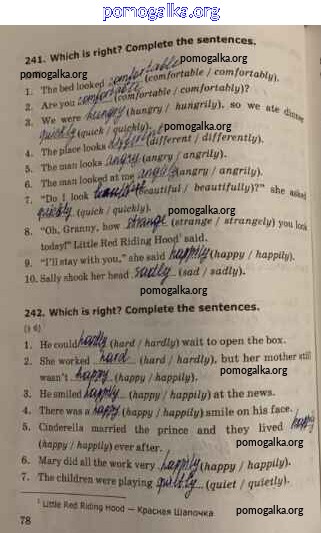 pomogalka.org
241. Which is right? Complete the sentences.
pomogalka.org pomogalka.org
1. The bed looked comfortable (comfortable / comfortably).
2. Are you comfortable (comfortable / comfortably)?
3. We were hungry (hungry / hungrily), so we ate dinner
quickly (quick / quickly). pomogalka.org
4. The place looks different (different / differently).
5. The man looks angry (angry / angrily).
pomogalka.org
6. The man looked at me angrily (angry / angrily).
7. "Do I look beautiful / beautifully)?" she asked
quickly. (quick / quickly). pomogalka.org
8. "Oh, Granny, how strange (strange / strangely) you look
today!" Little Red Riding Hood¹ said.
9. "I'll stay with you," she said happily (happy / happily).
10. Sally shook her head sadly (sad / sadly).
pomogalka.org
242. Which is right? Complete the sentences.
(§ 6) pomogalka.org
1. He could hardly (hard / hardly) wait to open the box.
2. She worked hard (hard / hardly), but her mother still
wasn't happy (happy / happily). pomogalka.org
3. He smiled happily (happy / happily) at the news.
4. There was a happy (happy / happily) smile on his face.
pomogalka.org
5. Cinderella married the prince and they lived happy
(happy / happily) ever after. pomogalka.org
6. Mary did all the work very happily (happy / happily).
7. The children were playing quietly (quiet / quietly).
pomogalka.org
¹ Little Red Riding Hood — Красная Шапочка
78
pomogalka.org
pomogalka.org